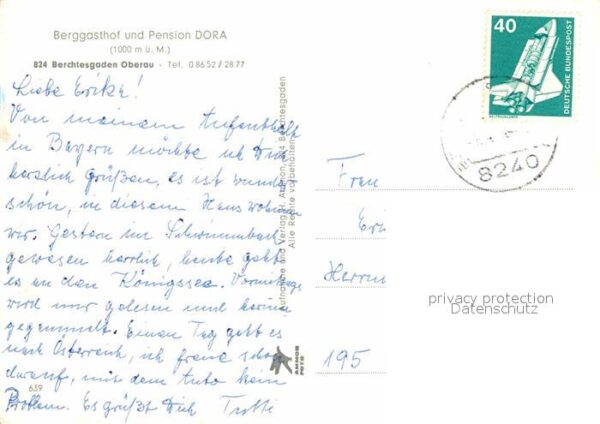 Berggasthof und Pension DORA
(1000 m ü. M.)
824 Berchtesgaden Oberau - Tel. 0 86 52 / 28 77
Liebe Erika!
Von meinem Aufenthalt
in Bayern möchte ich Dich
herzlich grüßen, es ist wunder
schön, in diesem Haus wohnen
wir. Gestern im Schwimmbad
gewesen herrlich, heute geht
es an den Königssee. Vormittags
wird nur gelesen und
gegammelt. Einen Tag geht es
nach Österreich, ich freue schon
darauf, mit dem Auto kein
Problem. Es grüßt Dich Trutti
639
Aufnahme und Verlag H. 824 Berchtesgaden
Alle Rechte vorbehalten
AMMON
FOTO
40
DEUTSCHE BUNDESPOST
8240
Frau
Er
Herrn
195
privacy protection
Datenschutz